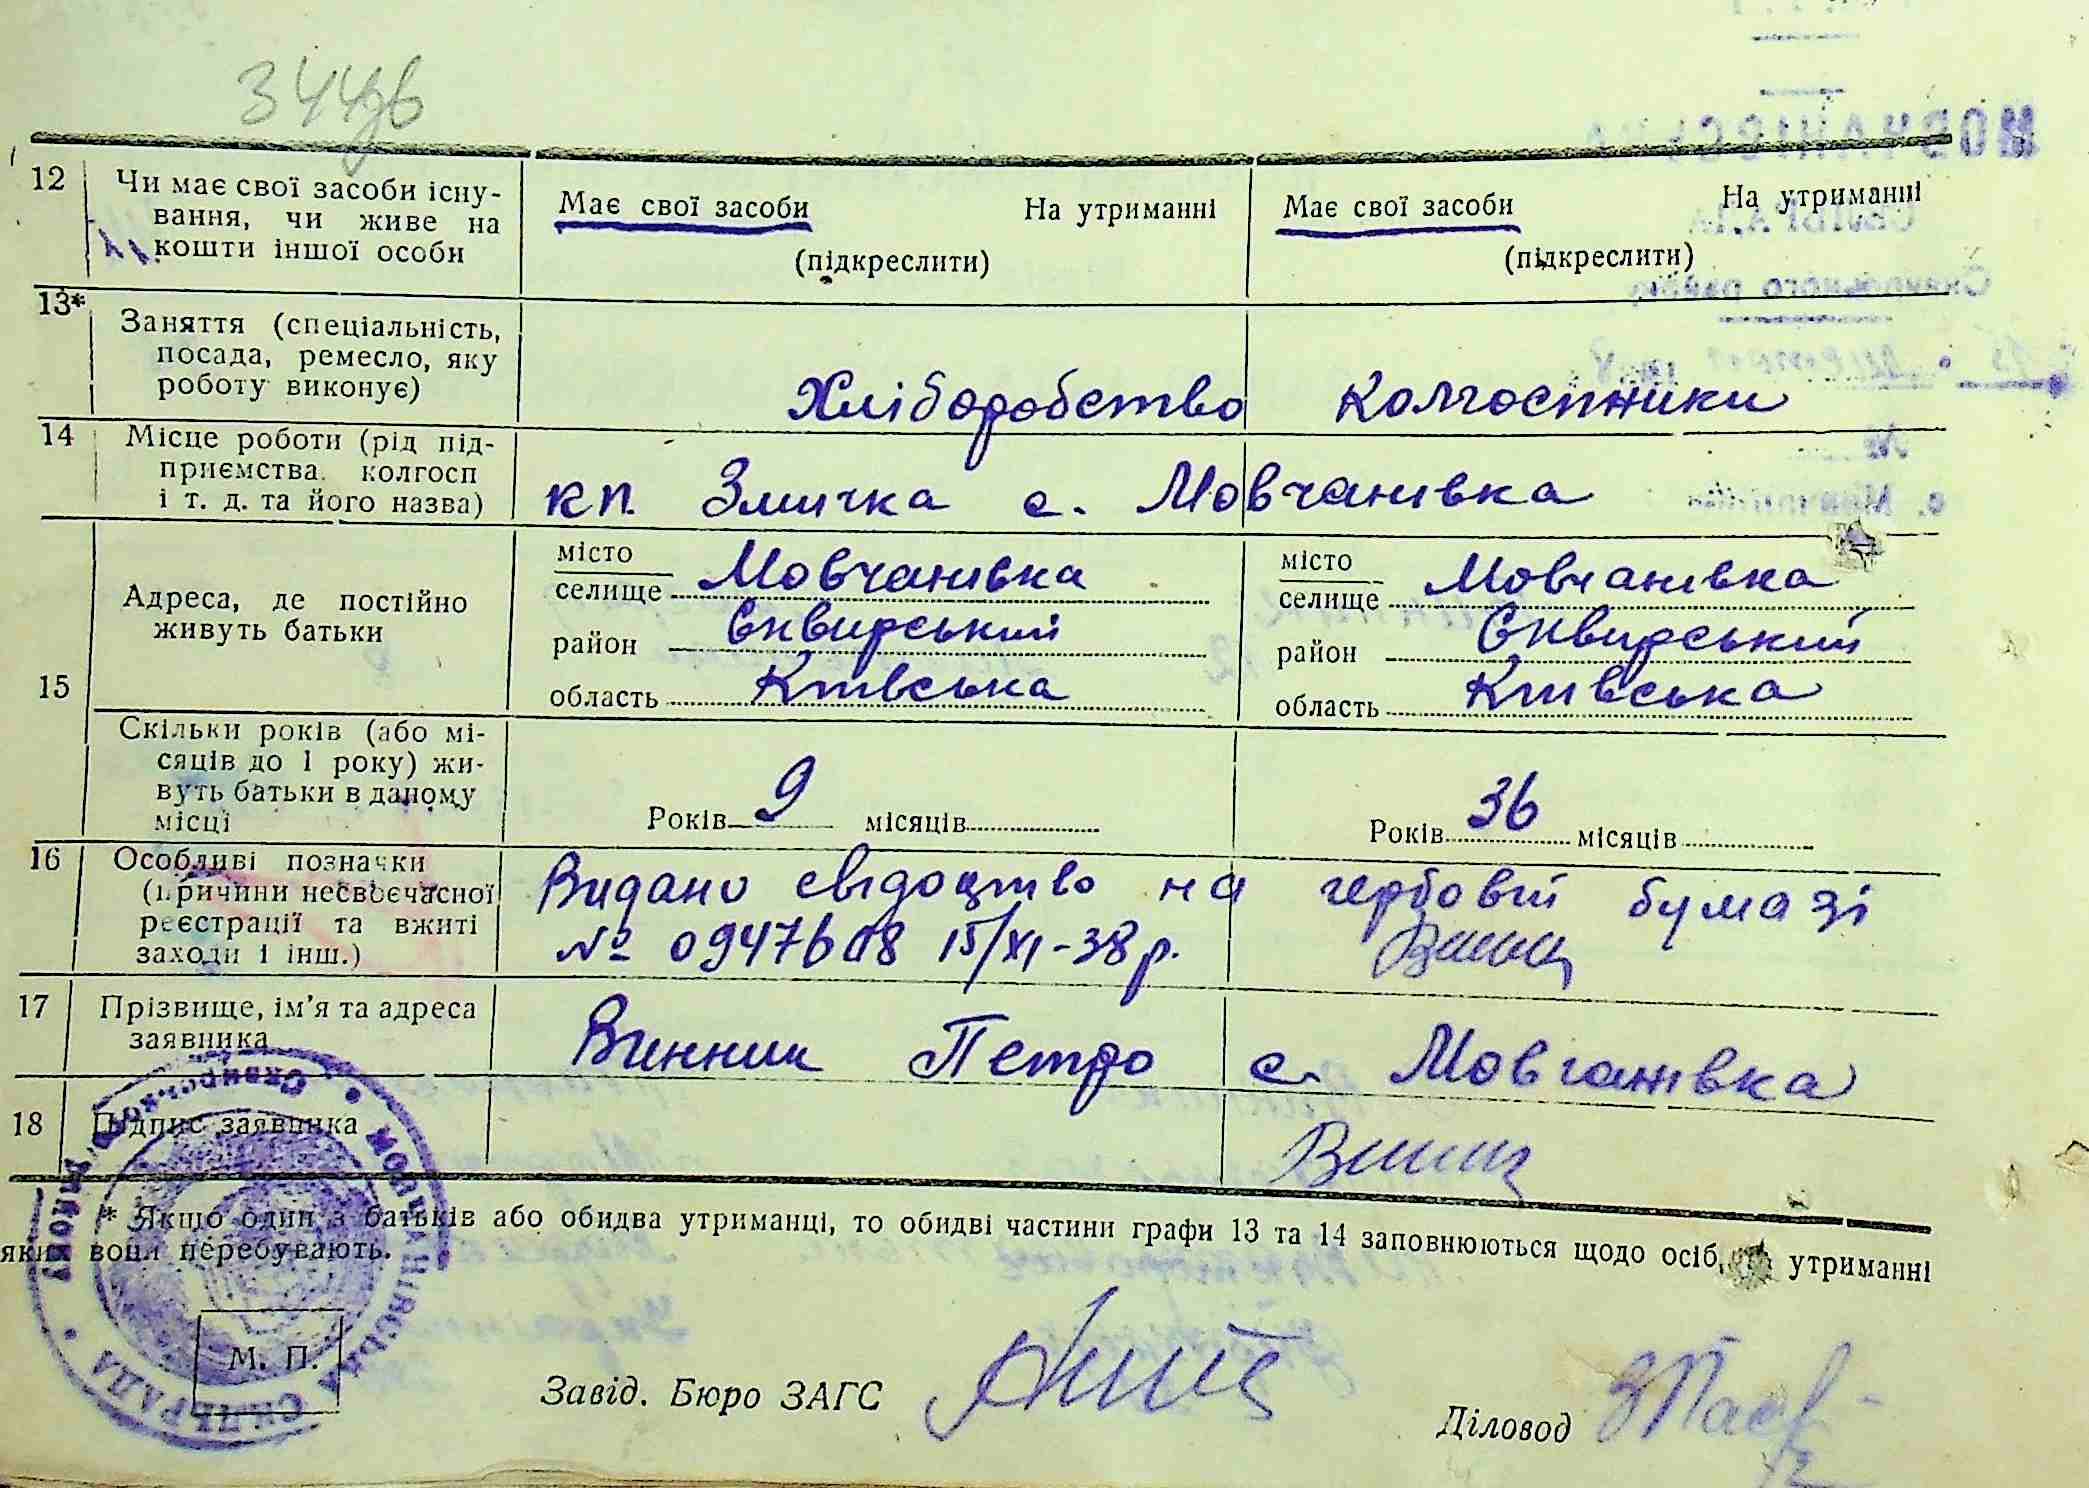 344зв
12 Чи має свої засоби існу-
вання, чи живе на
кошти іншої особи
Має свої засоби На утриманні
(підкреслити)
Має свої засоби На утриманні
(підкреслити)
13* Заняття (спеціальність,
посада, ремесло, яку
роботу виконує)
Хліборобство Колгоспники
14 Місце роботи (рід під-
приємства, колгосп
і т. д. та його назва)
кп. Змичка с. Мовчанівка
15 Адреса, де постійно
живуть батьки
місто
селище Мовчанівка
район Сквирський
область Київська
місто
селище Мовчанівка
район Сквирський
область Київська
Скільки років (або мі-
сяців до 1 року) жи-
вуть батьки в даному
місці
Років 9 місяців
Років 36 місяців
16 Особливі позначки
(причини несвоєчасної
реєстрації та вжиті
заходи і інш.)
Видано свідоцтво на гербовій бумазі
№ 0947608 15/XI-38 р.
17 Прізвище, ім'я та адреса
заявника
Винник Петро с. Мовчанівка
18 Підпис заявника
* Якщо один з батьків або обидва утриманці, то обидві частини графи 13 та 14 заповнюються щодо осіб, утриманні
яких вони перебувають.
М. П.
МОВЧАНІВСЬКА СІЛЬРАДА
Завід. Бюро ЗАГС
Діловод